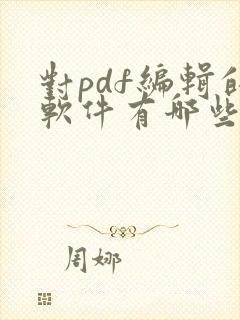 對pdf編輯的
軟件有哪些
周娜